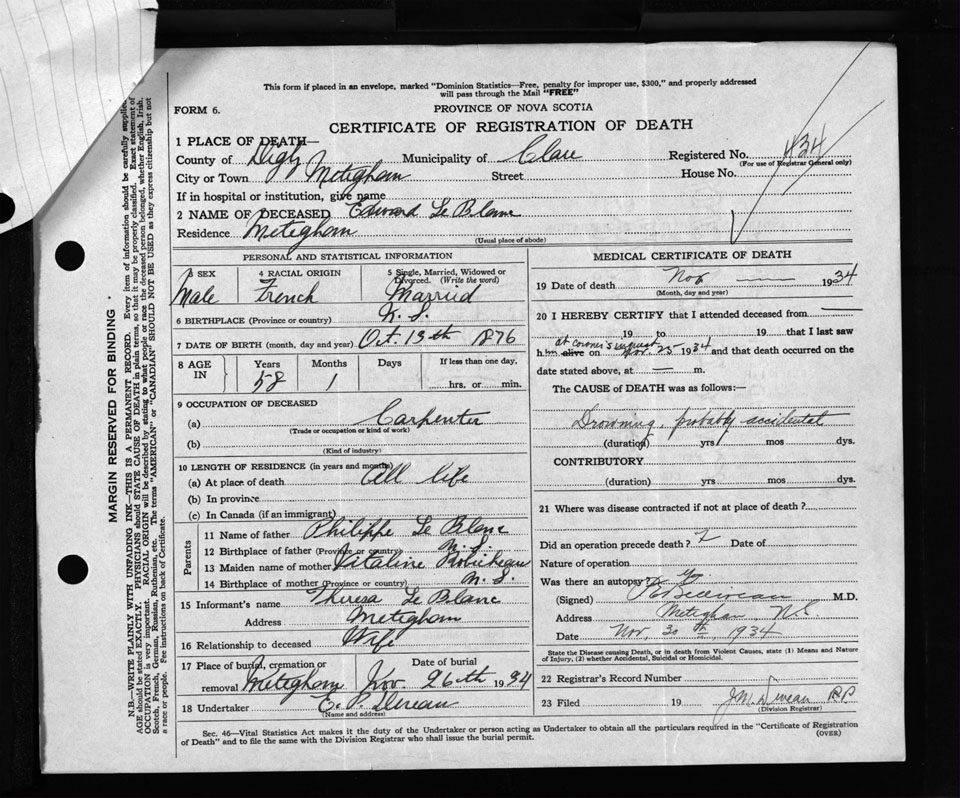 This form if placed in an envelope, marked "Dominion Statistics—Free, penalty for improper use, $300," and properly addressed
will pass through the Mail "FREE"
FORM 6.
PROVINCE OF NOVA SCOTIA
CERTIFICATE OF REGISTRATION OF DEATH
1 PLACE OF DEATH—
County of Digby Municipality of Clare Registered No. 434
(For use of Registrar General only)
City or Town Meteghan Street House No.
If in hospital or institution, give name
2 NAME OF DECEASED Edward Le Blanc
Residence Meteghan
(Usual place of abode)
PERSONAL AND STATISTICAL INFORMATION
3 SEX Male
4 RACIAL ORIGIN French
5 Single, Married, Widowed or Divorced. (Write the word) Married
6 BIRTHPLACE (Province or country) N.S.
7 DATE OF BIRTH (month, day and year) Oct. 13th 1876
8 AGE IN Years 58 Months 1 Days If less than one day, hrs. or min.
9 OCCUPATION OF DECEASED
(a) Carpenter
(Trade or occupation or kind of work)
(b)
(Kind of industry)
10 LENGTH OF RESIDENCE (in years and months)
(a) At place of death All life
(b) In province
(c) In Canada (if an immigrant)
Parents
11 Name of father Philippe Le Blanc
12 Birthplace of father (Province or country) N.S.
13 Maiden name of mother Vitaline Robicheau
14 Birthplace of mother (Province or country) N.S.
15 Informant's name Theresa Le Blanc
Address Meteghan
16 Relationship to deceased Wife
17 Place of burial, cremation or removal Meteghan
Date of burial Nov. 26th 1934
18 Undertaker E. P.
(Name and address)
MEDICAL CERTIFICATE OF DEATH
19 Date of death Nov — 1934
(Month, day and year)
20 I HEREBY CERTIFY that I attended deceased from
19 to 19 that I last saw
at coroner's inquest
him alive on Nov. 25 1934 and that death occurred on the
date stated above, at — m.
The CAUSE of DEATH was as follows:—
Drowning, probably accidental
(duration) yrs mos dys.
CONTRIBUTORY
(duration) yrs mos dys.
21 Where was disease contracted if not at place of death?
Did an operation precede death? Date of
Nature of operation
Was there an autopsy?
(Signed) M.D.
Address Meteghan, N.S.
Date Nov. 30th 1934
State the Disease causing Death, or in death from Violent Causes, state (1) Means and Nature
of Injury, (2) whether Accidental, Suicidal or Homicidal.
22 Registrar's Record Number
23 Filed 19
(Division Registrar)
Sec. 46—Vital Statistics Act makes it the duty of the Undertaker or person acting as Undertaker to obtain all the particulars required in the "Certificate of Registration
of Death" and to file the same with the Division Registrar who shall issue the burial permit. (OVER)
MARGIN RESERVED FOR BINDING
N.B.—WRITE PLAINLY WITH UNFADING INK—THIS IS A PERMANENT RECORD. Every item of information should be carefully supplied.
AGE should be stated EXACTLY. PHYSICIANS should STATE CAUSE OF DEATH in plain terms, so that it may be properly classified. Exact statement of
OCCUPATION is very important. RACIAL ORIGIN will be described by stating to what people or race the deceased person belonged, whether English, Irish,
Scotch, French, German, Russian, Ruthenian, etc. The terms "AMERICAN" or "CANADIAN" SHOULD NOT BE USED as they express citizenship but not
a race or people. See instructions on back of Certificate.